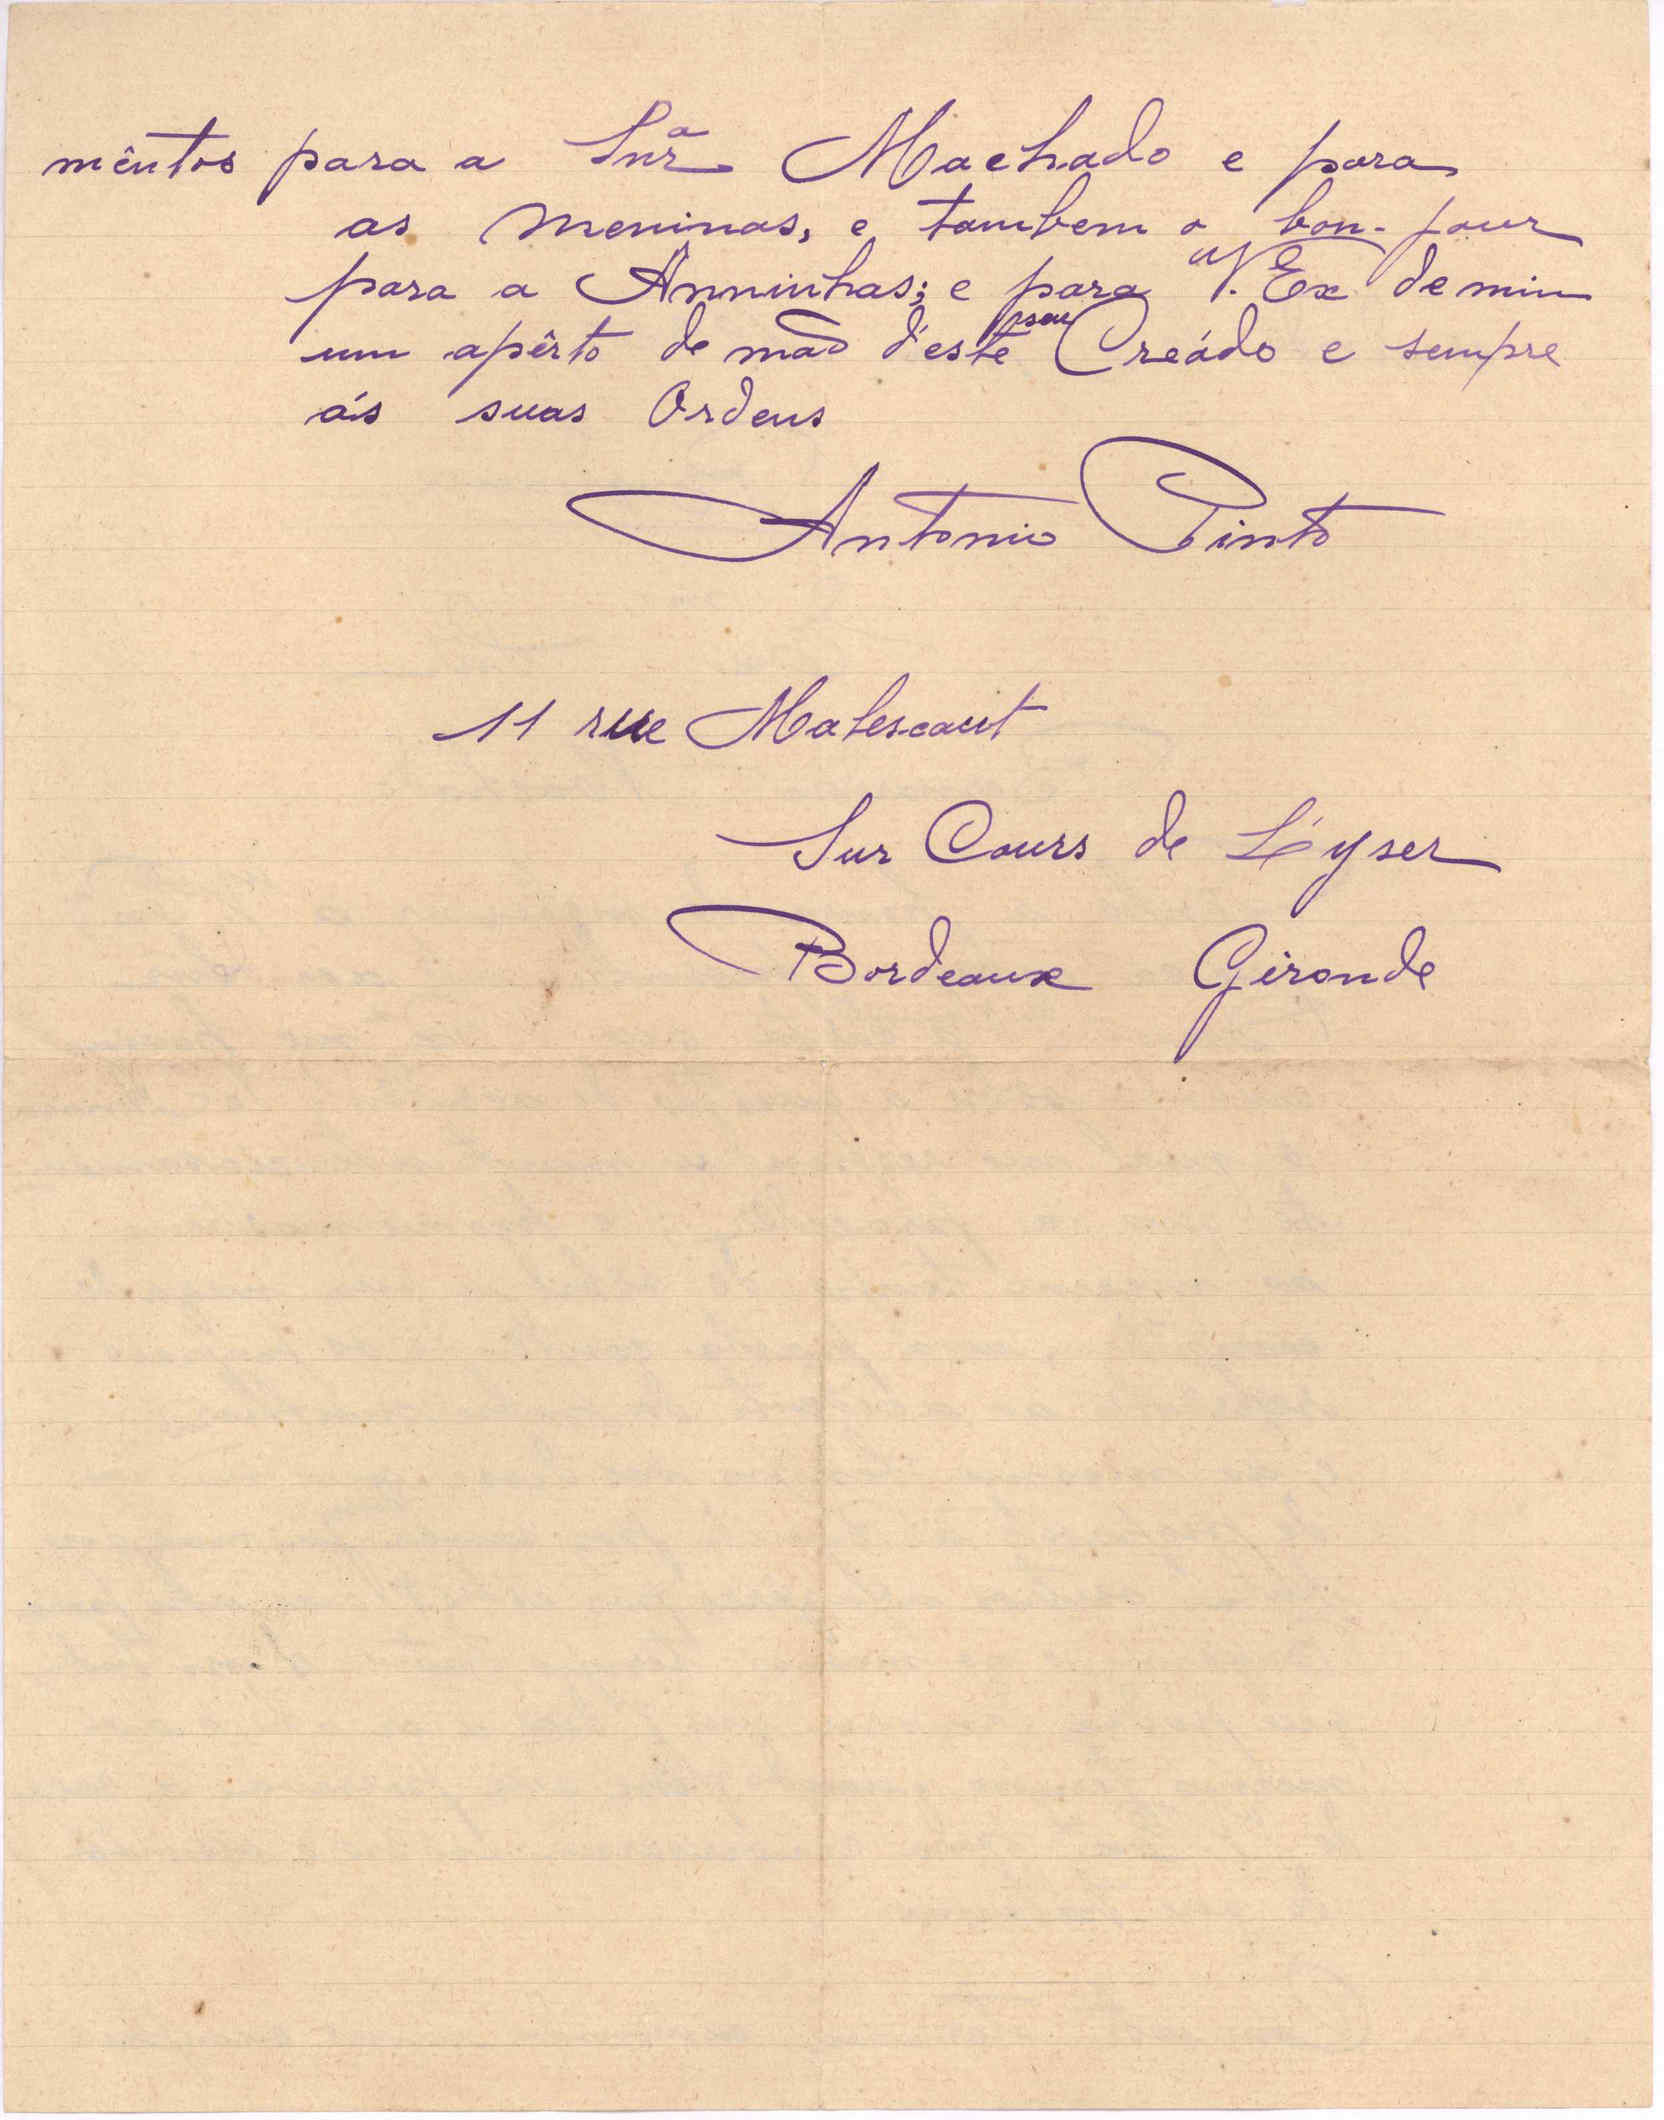 mêntos para a Snrª Machado e para
as meninas, e tambem o bon-jour
para a Anninhas; e para V. Exª de mim
um apêrto de mão d'este seu Creádo e sempre
ás suas Ordens
Antonio Pinto
11 rue Malescaut
Sur Cours de L'yser
Bordeaux Gironde